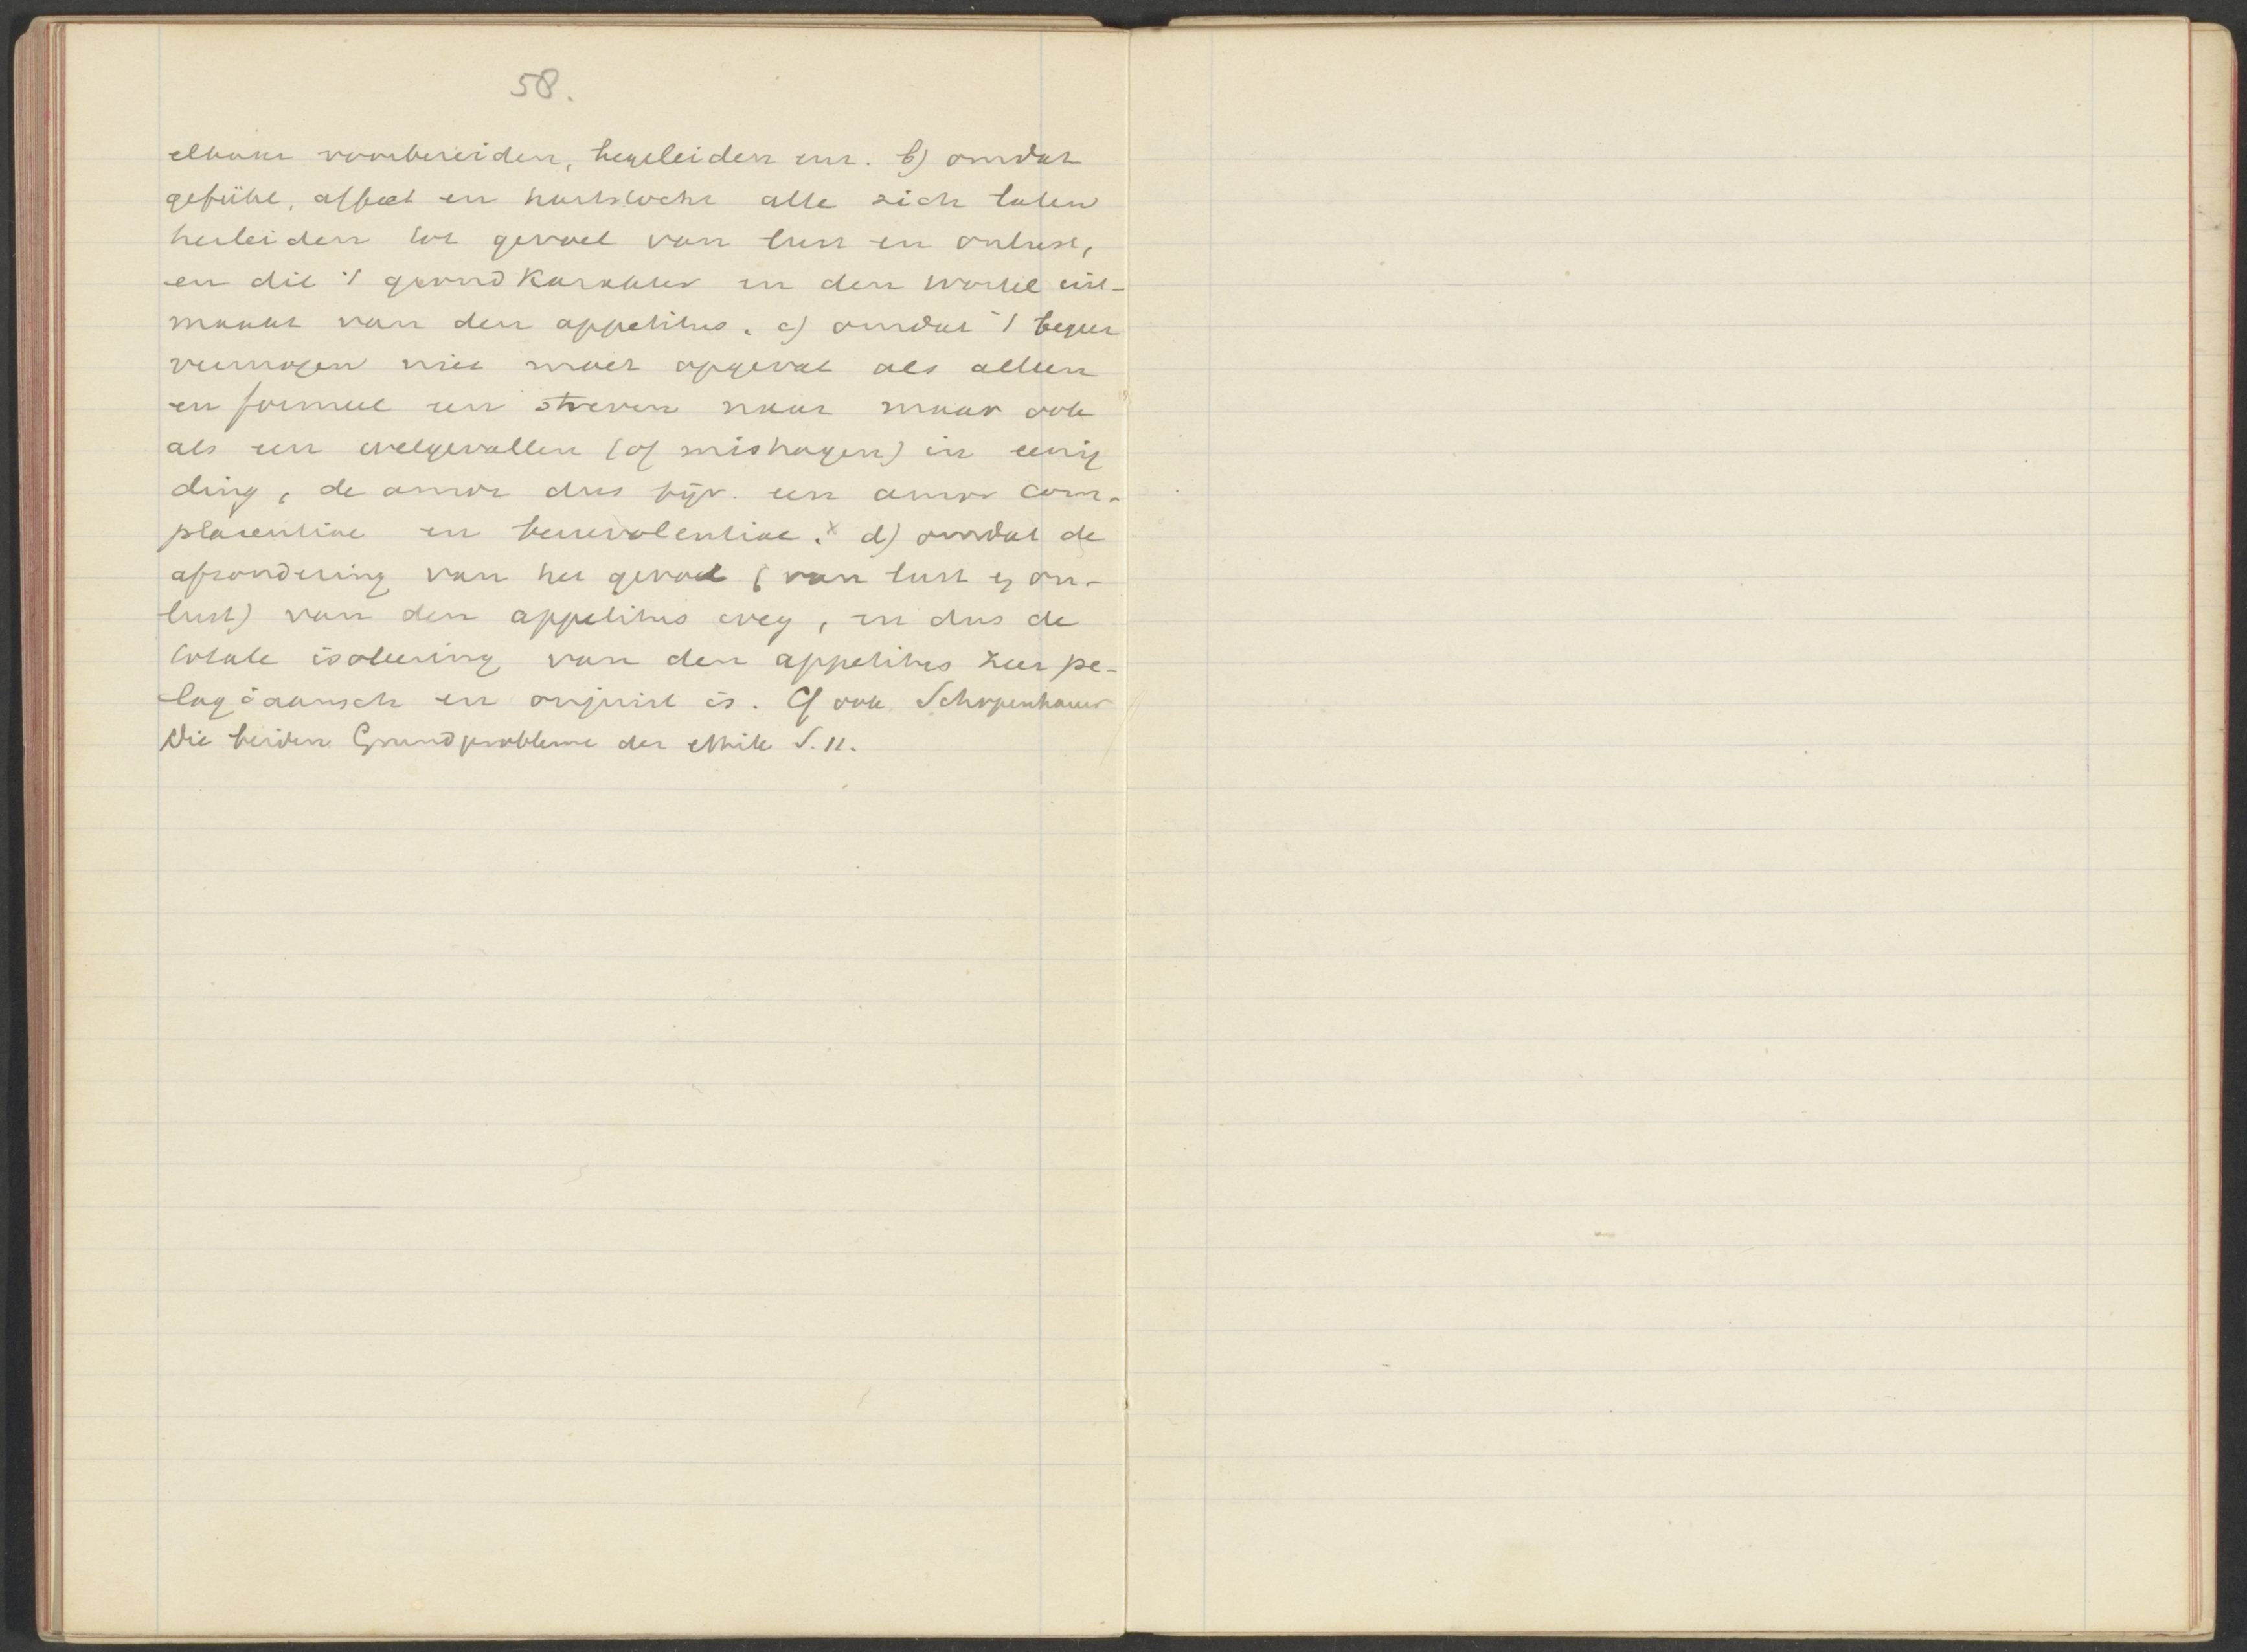 58.
elkaar voorbereiden, begeleiden enz. b) omdat
gefühl, affect en hartstocht alle zich laten
herleiden tot gevoel van lust en onlust,
en dit 't grondkarakter en den wortel uit-
maakt van den appetitus. c) omdat 't begeer
vermogen niet moet opgevat als alleen
en formeel een streven naar maar ook
als een welgevallen (of mishagen) in eenig
ding, de amor dus bijv. een amor com-
placentiae en benevolentiae. x d) omdat de
afzondering van het gevoel (van lust en on-
lust) van den appetitus weg, en dus de
totale isoleering van den appetitus zeer pe-
lagiaansch en onjuist is. Cf ook Schopenhauer
Die beiden Grundprobleme der Ethik S. 11.